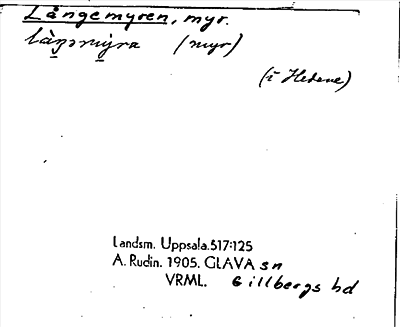 Långemyren, myr.
(myr)
(i Hedane)
Landsm. Uppsala.517:125
A. Rudin. 1905. GLAVA sn
VRML. Gillbergs hd